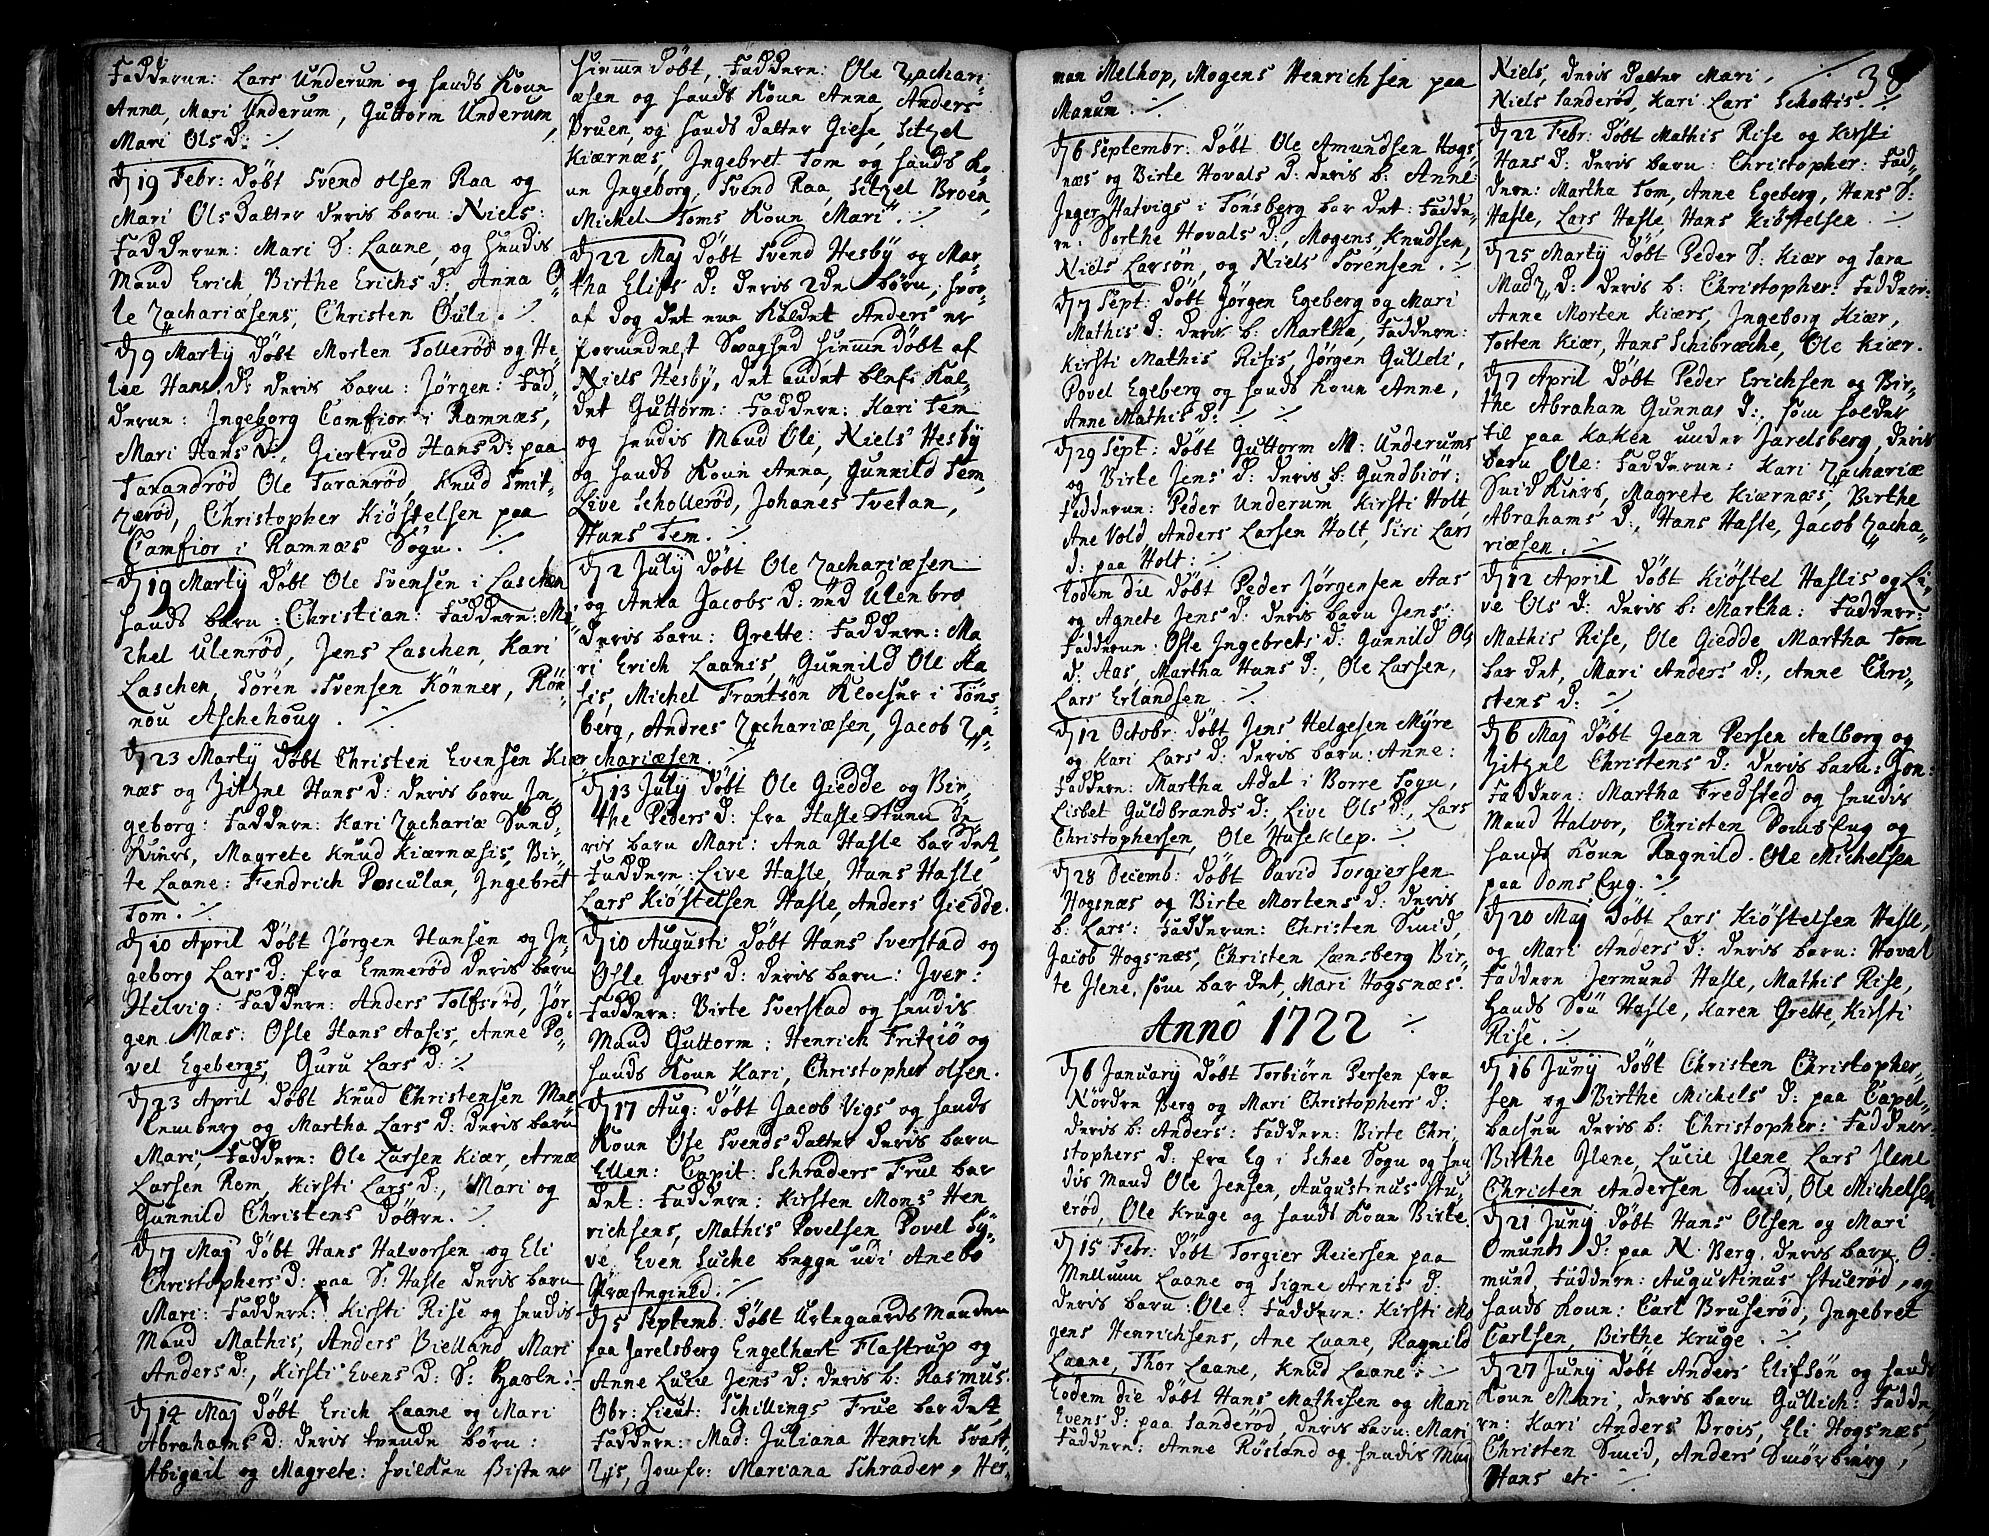 Fadderne: Lars Underum og hands Kone
Anna, Mari Underum, Guttorm Underum,
Mari Ols D: ./.
D 19 Febr: Døbt Svend Olsen Raa og
Mari Olsdatter deris barn: Niels:
Fadderne: Mari S: Laane, og hendis
Mand Erich Birthe Erichs D: Anna O-
le Zachariæsens, Christen Ouli. ./.
D 9 Martÿ Døbt Morten Tollerød og He-
lee Hans D: deris barn: Jørgen: Fad-
derne: Ingeborg Camfior i Ramnæs,
Mari Hans D:, Giertrud Hans D: paa
Tarandrød, Ole Taranrød, Knud Smit-
zerød, Christopher Kiøstelsen paa
Camfior i Ramnæs Sogn. ./.
D 19 Martÿ Døbt Ole Svensen i Laschen
hands barn: Christian: Faddern: Mi-
chel Ulenrød, Jens Laschen, Kari
Laschen, Søren Svensen Könner, Røn-
nou Aschehoug. ./.
D 23 Martÿ Døbt Christen Evensen Kier-
næs og Zitzne Hans D: deris barn In-
geborg: Faddern: Kari Zachariæ Sund-
Kiers, Magrete Knud Kiærnæsis, Bir-
te Laane: Fendrich Posculan, Ingebret
Tom. ./.
D 10 April Døbt Jørgen Hansen og In-
geborg Lars D: fra Emmerød deris barn
Helvig: Faddern: Anders Tolfsrød, Jør-
gen Næs: Osle Hans Aasis, Anne Po-
vel Egebergs, Guru Lars D: ./.
D 23 April Døbt Knud Christensen Mel-
lemberg og Martha Lars D: deris barn
Mari, Faddern: Ole Larsen Kiær, Arnæ
Larsen Rom, Kirsti Lars D:, Mari og
Gunnild Christens Døttre. ./.
D 7 Maj Døbt Hans Halvorsen og Eli
Christophers D: paa S: Hasle deris barn
Mari: Faddern: Kirsti Rise og hendis
Mand Mathis, Anders Bielland, Mari
Anders D:, Kirsti Evens D: S: Hasle:
D 14 Maj Døbt Erich Laane og Mari
Abrahams D: deris tvende børn:
Abigail og Magrete: hvilden sidste er
hiemme døbt, Faddern: Ole Zachari-
æsen og hands Kone Anna, Anders
Bruen, og hands datter Giese, Sitzel
Kiærnæs, Ingebret Tom og hands Ko-
ne Ingeborg, Svend Raa, Sitzel Broen,
Michel Toms Kone Mari. ./.
D 22 Maj Døbt Svend Hesbÿ og Mar-
tha Elifs D: deris 2de børn, hvor-
af dog det ene Kaldet Anders er
formedelst Svaghed hiemme døbt af
Niels Hesbÿ, det andet blef Kal-
det Guttorm: Faddern: Kari Fem
og hendis Mand Ole, Niels Hesbÿ
og hands Kone Anna, Gunnild Fem,
Live Schollerød, Johanes Tvetan,
Hans Fem. ./.
D 2 Julÿ Døbt Ole Zachariæsen
og Anna Jacobs D: ved Ulenbro
deris barn: Grette: Faddern: Ma-
ri Erich Laanis, Gunnild Ole Aa-
sis, Michel Frantsøn Klocher i Tøns-
berg, Andres Zachariæsen, Jacob Za-
chariæsen. ./.
D 13 Julÿ Døbt Ole Giedde og Bir-
the Peders D: fra Hasle Stuen de-
ris barn Mari: Ana Hasle bar det,
Faddern: Live Hasle, Hans Hasle
Lars Kiøstelsen Hasle, Anders Giedde.
D 10 Augusti Døbt Hans Sverstad og
Osle Ivers D: deris barn: Iver:
Faddern: Birte Sverstad og hendis
Mand Guttorm: Henrich Fritziø og
hands Kone Kari, Christopher Olsen.
D 17 Aug: Døbt Jacob Vigs og hands
Kone Ose Svends datter deris barn
Ellen: Capit: Schraders Frue bar
det: Faddern: Kirsten Mons Hen-
richsens, Mathis Povelsen, Povel Sÿ-
ve, Even Suche begge udi Anebo
Præstegield. ./.
D 5 Septemb: Døbt Urtegaards Manden
paa Jarelsberg Engelhart Flastrup og
Anne Lucie Jens D: deris b: Rasmus:
Obr: Lieut: Schillings Frue bar det,
Faddern: Mad: Juliana Henrich Svart-
zis, Jomfr: Mariana Schrader, Her-
man Melhop, Mogens Henrichsen paa
Manum. ./.
D 6 Septembr: Døbt Ole Amundsen Hogs-
næs og Birte Hovals D: deris b: Anne:
Inger Hatvigs i Tønsberg bar det: Fadde-
rn: Dorthe Hovals D:, Mogens Knudsen,
Niels Larsøn, og Niels Sørensen. ./.
D 7 Sept: Døbt Jørgen Egeberg og Mari
Mathis D: deris b: Martha, Faddern:
Kirsti Mathis Risis, Jørgen Gulleli,
Povel Egeberg og hands Kone Anne,
Anne Mathis D: ./.
D 29 Sept: Døbt Guttorm M: Underums
og Birte Jens D: deris b: Gundbiør:
Fadderne: Peder Underum, Kirsti Holt,
Ane Vold, Anders Larsen Holt, Siri Lars
D: paa Holt: ./.
Eodem die Døbt Peder Jørgensen Aas
og Agnete Jens D: deris barn Jens:
Fadderne: Osle Ingebrets D: Gunnild Ols
D: Aas, Martha Hans D:, Ole Larsen,
Lars Erlandsen. ./.
D 12 Octobr: Døbt Jens Helgesen Mÿre
og Kari Lars D: deris barn: Anne:
Faddern: Martha Adal i Borre Sogn,
Lisbet Guldbrands D: Live Ols D:, Lars
Christophersen, Ole Huseklep. ./.
D 28 Decemb: Døbt David Torgiersen
Hogsnæs og Birte Mortens D: deris
b: Lars: Fadderne: Christen Smid,
Jacob Hogsnæs, Christen Lænsberg Bir-
te Ilene, som bar det, Mari Hogsnæs.
Anno 1722 ./.
D 6 Januarÿ Døbt Torbiørn Persen fra
Nördre Berg og Mari Christophers D:
deris b: Anders: Faddern: Birte Chri-
stophers D: fra Eg i Schee Sogn og hen-
dis Mand Ole Jensen, Augustinus Stu-
erød, Ole Kruge og hands Kone Birte.
D 15 Febr: Døbt Torgier Reiersen paa
Mellem Laane og Signe Arnis D:
deris barn: Ole: Faddern: Kirsti Mo-
gens Henrichsens, Ane Laane, Ragnild
Laane, Thor Laane, Knud Laane: ./.
Eodem die Døbt Hans Mathisen og Mari
Evens D: paa Sanderød, deris barn: Mari
Faddern: Anne Røsland og hendis Man
Niels, deris datter Mari, ./. 38
Niels Sanderød, Kari Lars Schottis. ./.
D 22 Febr: Døbt Mathis Rise og Kirsti
Hans D: deris barn: Christopher: Fad-
dern: Martha Tom, Anne Egeberg, Hans S:
Hasle, Lars Hasle, Hans Kiöstelsen. ./.
D 25 Martÿ Døbt Peder S: Kiær og Sara
Madz D: deris b: Christopher: Fadder:
Anne Morten Kiærs, Ingeborg Kiær,
Tosten Kiær, Hans Schibræche, Ole Kiær.
D 7 April Døbt Peder Erichsen og Bir-
the Abraham Gunnas D:, som holder
til paa Kaken under Jarelsberg, deris
barn Ole: Fadderne: Kari Zachariæ
Smid Kiers, Magrete Kiærnæs, Birthe
Abrahams D:, Hans Hasle, Jacob Zacha-
riæsen. ./.
D 12 April Døbt Kiöstel Haslis og Li-
ve Ols D: deris b: Martha: Fadder:
Mathis Rise, Ole Giedde, Martha Tom
bar det, Mari Anders D:, Anne Chri-
stens D: ./.
D 6 Maj Døbt Jean Persen Aalborg og
Zitzel Christens D: deris barn: Jon:
Faddern: Martha Fredsted og hendis
Mand Halvor, Christen DomsEng og
hands Kone Ragnild. Ole Michelsen
paa Doms Eng. ./.
D 20 Maj Døbt Lars Kiöstelsen Hasle,
og Mari Anders D: deris barn: Hoval
Faddern Jermund Hasle, Mathis Rise,
Hands Søn Hasle, Karen Grette, Kirsti
Rise. ./.
D 16 Junÿ Døbt Christen Christopher-
sen og Birthe Michels D: paa Capel-
bachen deris b: Christopher: Fadder:
Birthe Ilene, Lucie Ilene Lars Ilene
Christen Andersen Smid, Ole Michelsen
D 21 Junÿ Døbt Hans Olsen og Mari
Omunds D: paa N. Berg. deris barn O-
mund, Faddern: Augustinus Stuerød, og
hands Kone: Carl Bruserød, Ingebret
Carlsen, Birthe Kruge. ./.
D 27 Junÿ Døbt Anders Elifsøn og hands
Kone Mari, deris barn Gullich: Fadde-
rn: Kari Anders Brois, Eli Hogsnæs,
Christen Smid, Anders Smörbierg,
Hans eti ./.